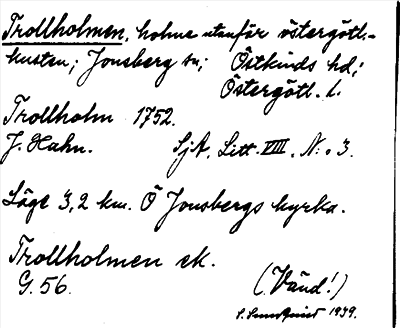 Trollholmen, holme utanför östergötl.-
kusten; Jonsberg sn; Östkinds hd;
Östergötl. l.
Trollholm 1752.
J. Hahn. SjA, Litt. VIII, N:o 3.
Läge 3,2 km. Ö Jonsbergs kyrka.
Trollholmen ek.
G. 56. (Vänd!)
1939.